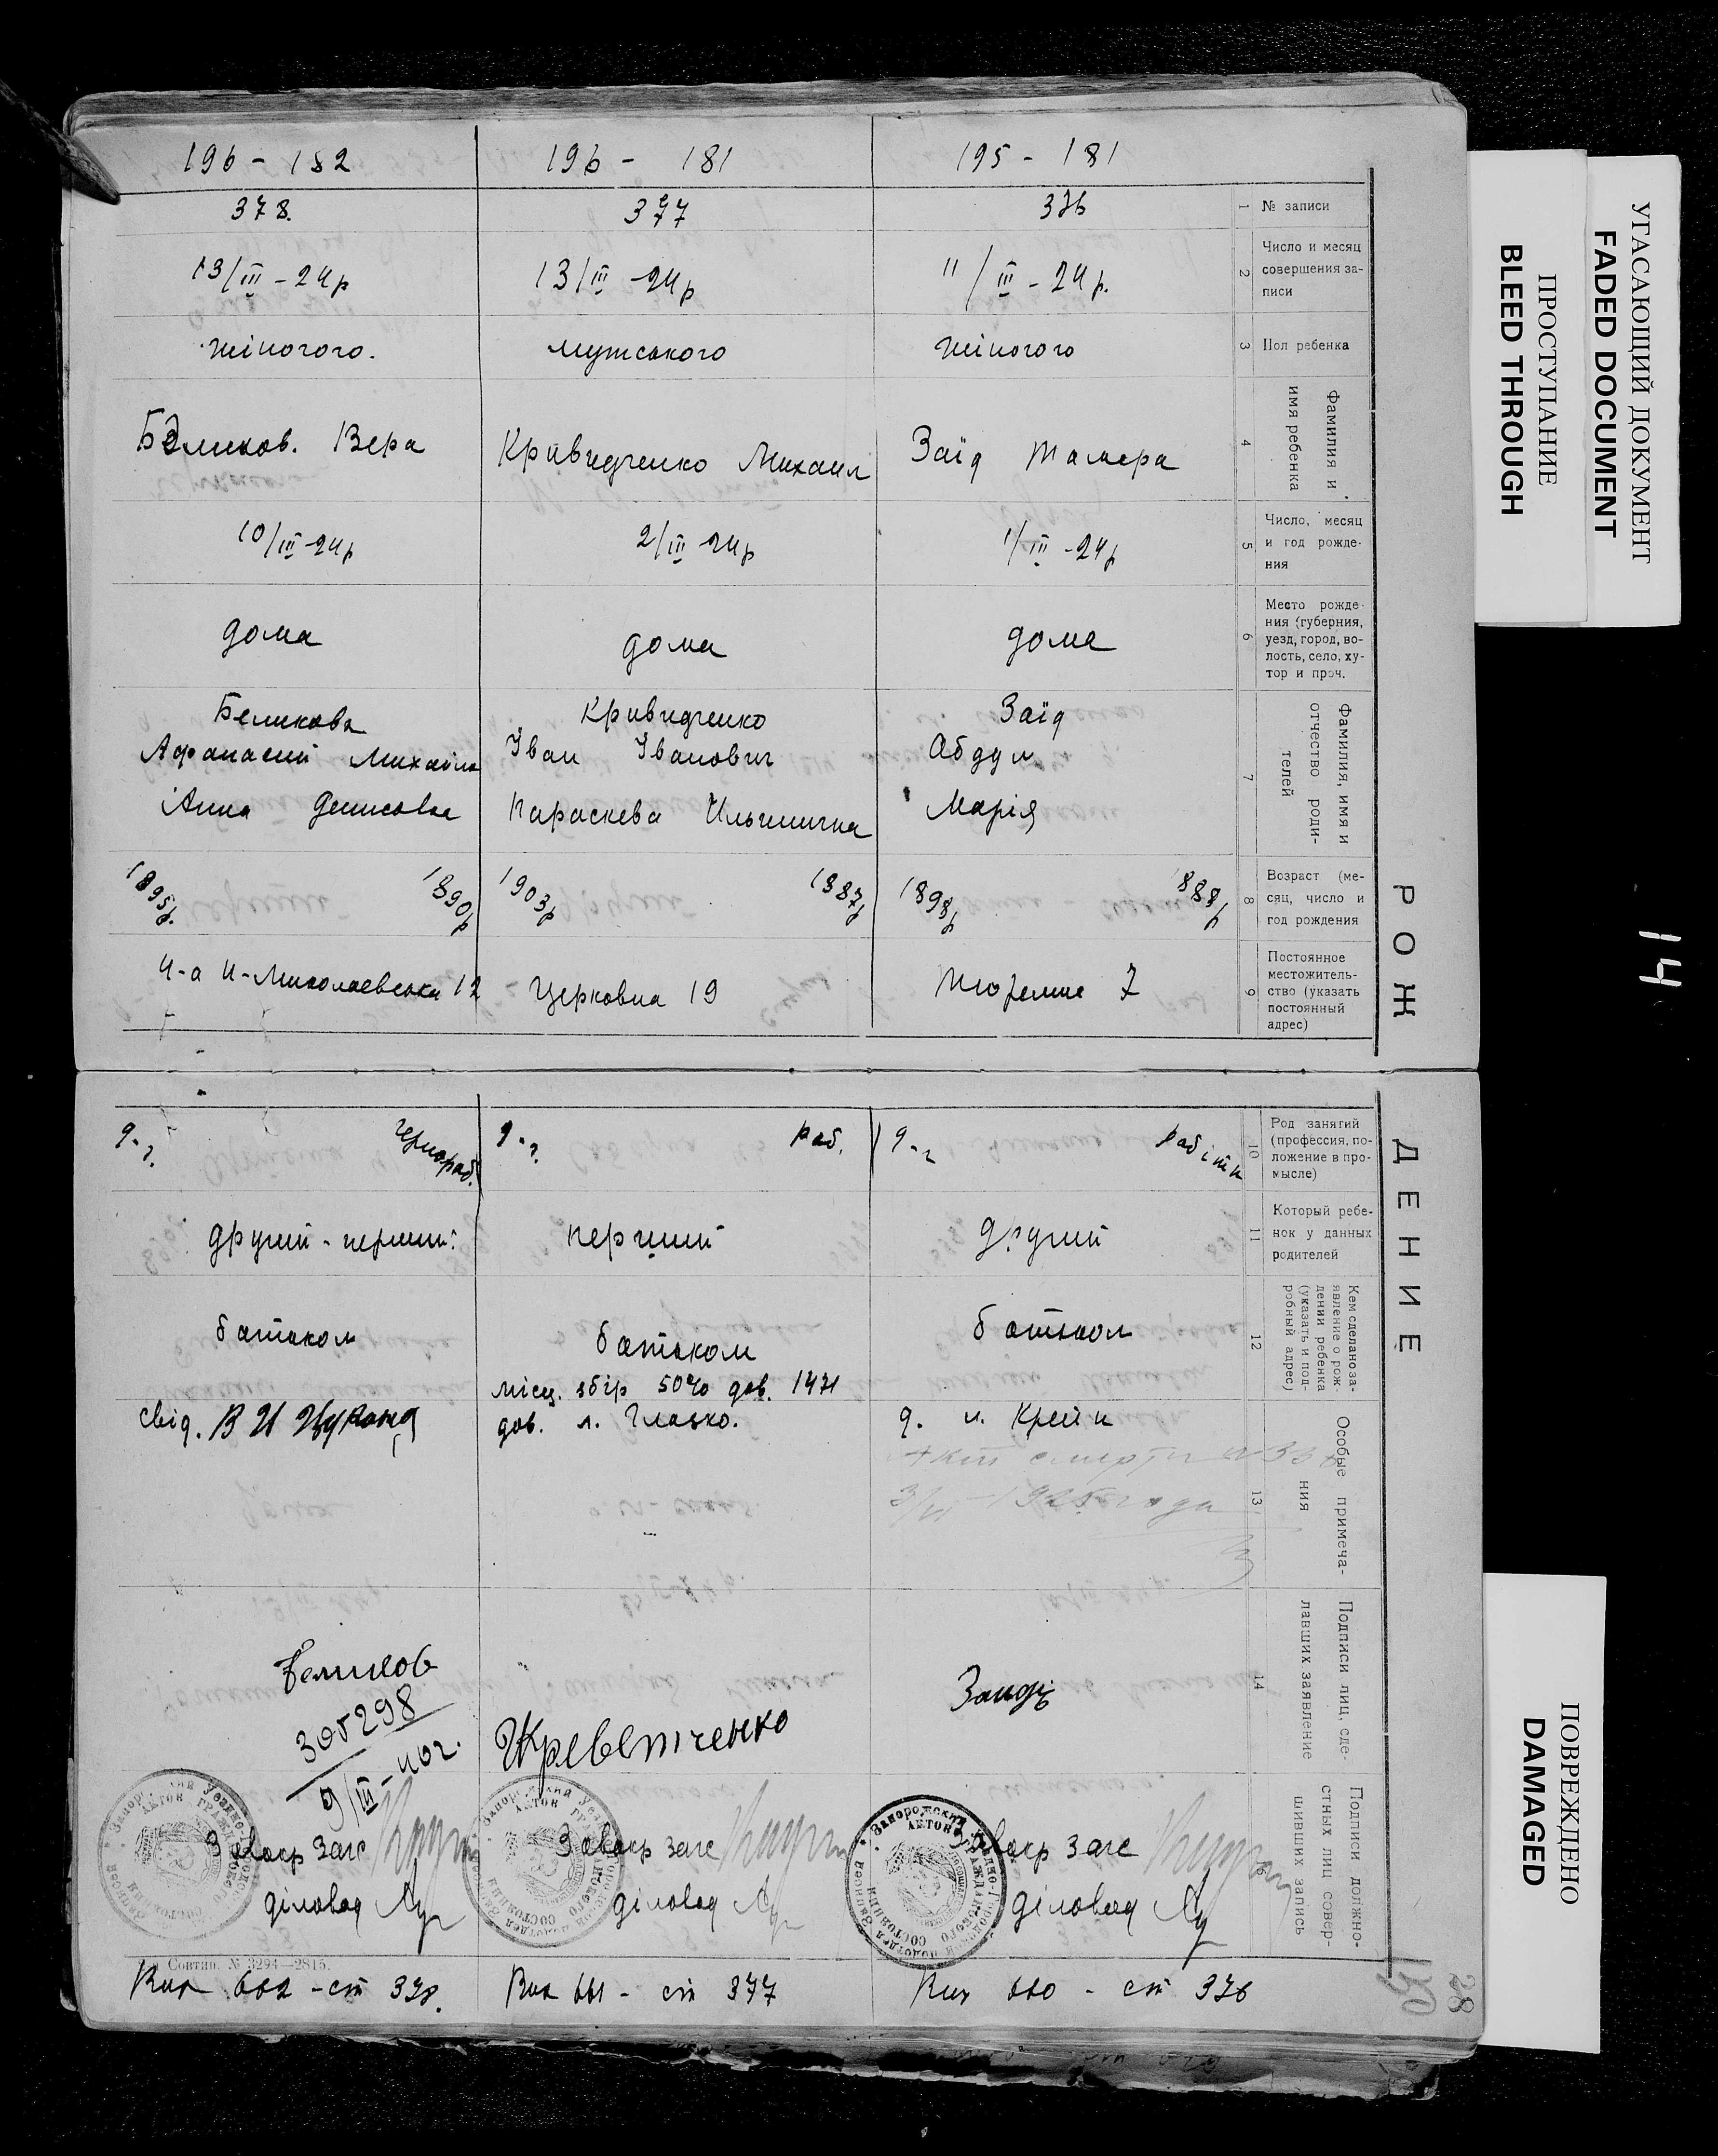 196 - 182
196 - 181
195 - 181
378.
377
376
1
№ записи
13/III - 24р
13/III - 24р
11/III - 24р.
2
Число и месяц
совершения за-
писи
жіночого.
мужського
жіночого
3
Пол ребенка
Беликов. Вера
Кривидченко Михаил
Заїд Тамера
4
Фамилия и
имя ребенка
10/III - 24р
2/III - 24р
1/III - 24р
5
Число, месяц
и год рожде-
ния
дома
дома
дома
6
Место рожде-
ния (губерния,
уезд, город, во-
лость, село, ху-
тор и проч.
Беликова
Афанасий Михайло
Анна Денисовна
Кривидченко
Іван Іванович
Параскева Ильинична
Заїд
Абдул
Марія
7
Фамилия, имя и
отчество роди-
телей
1895р. 1890р
1903р 1887р
1898р 1888р
8
Возраст (ме-
сяц, число и
год рождения
4-а Н-Миколаевська 12
Церковна 19
Тюремне 7
9
Постоянное
местожитель-
ство (указать
постоянный
адрес)
РОЖ
д-г. чернораб.
д-г. раб.
д-г робітн
10
Род занятий
(профессия, по-
ложение в про-
мысле)
другий - перший
перший
другий
11
Который ребе-
нок у данных
родителей
батьком
батьком
батьком
12
Кем сделано за-
явление о рож-
дении ребенка
(указать и под-
робный адрес)
місц. збір 50% дов. 1471
свід.
дов. л. Гласко.
д. л. Крейн
Акт смерти № 33
3/VI - 1925 года
13
Особые примеча-
ния
Беликов
305298
9/III - 40г.
Заидъ
14
Подписи лиц, сде-
лавших заявление
Завокр загс
діловод
Завокр загс
діловод
Завокр загс
діловод
Подписи должно-
стных лиц совер-
шивших запись
ДЕНИЕ
Совтип. № 3294—2815.
Кни 662 - ст 378.
Кни 661 - ст 377
Кни 660 - ст 376
28
130
УГАСАЮЩИЙ ДОКУМЕНТ
FADED DOCUMENT
ПРОСТУПАНИЕ
BLEED THROUGH
14
ПОВРЕЖДЕНО
DAMAGED